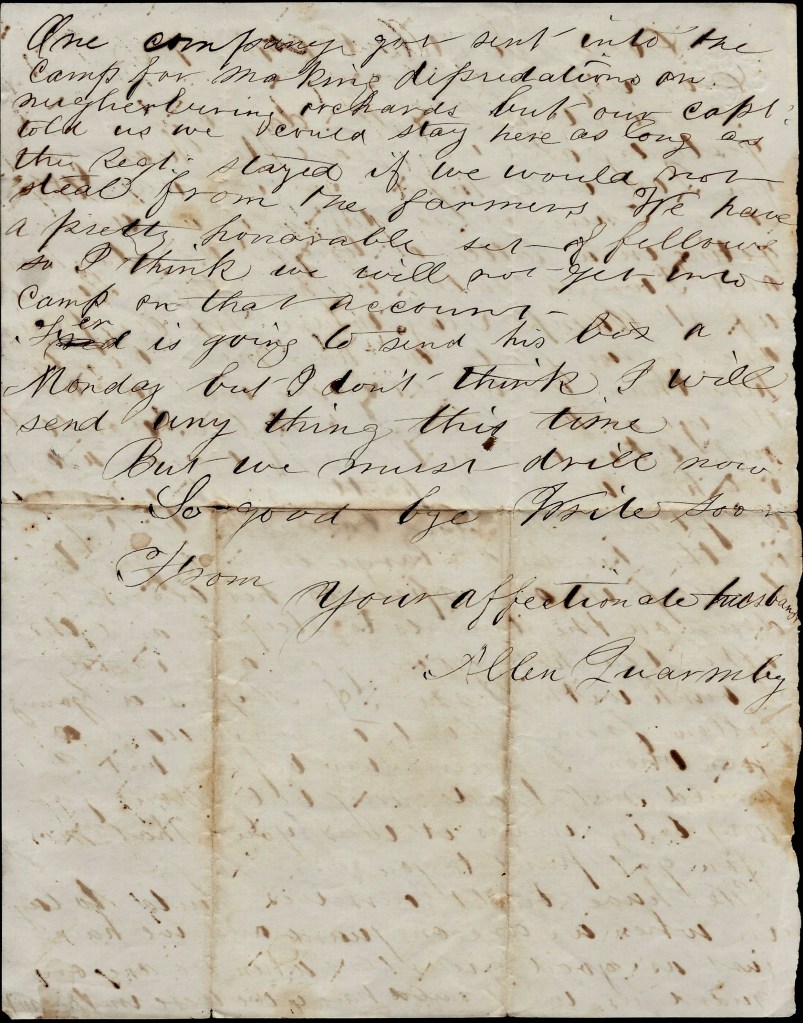 One company got sent into the
camp for making depredations on
neigherburing orchards but our capt.
told us we could stay here as long as
the Regt. stayed if we would not
steal from the farmers We have
a pretty honorable set of fellows
so I think we will not get into
camp on that account
is going to send his box a
Monday but I don't think I will
send any thing this time
But we must drill now
So good bye Write soon
From
Your affectionate husband
Allen Quarmby